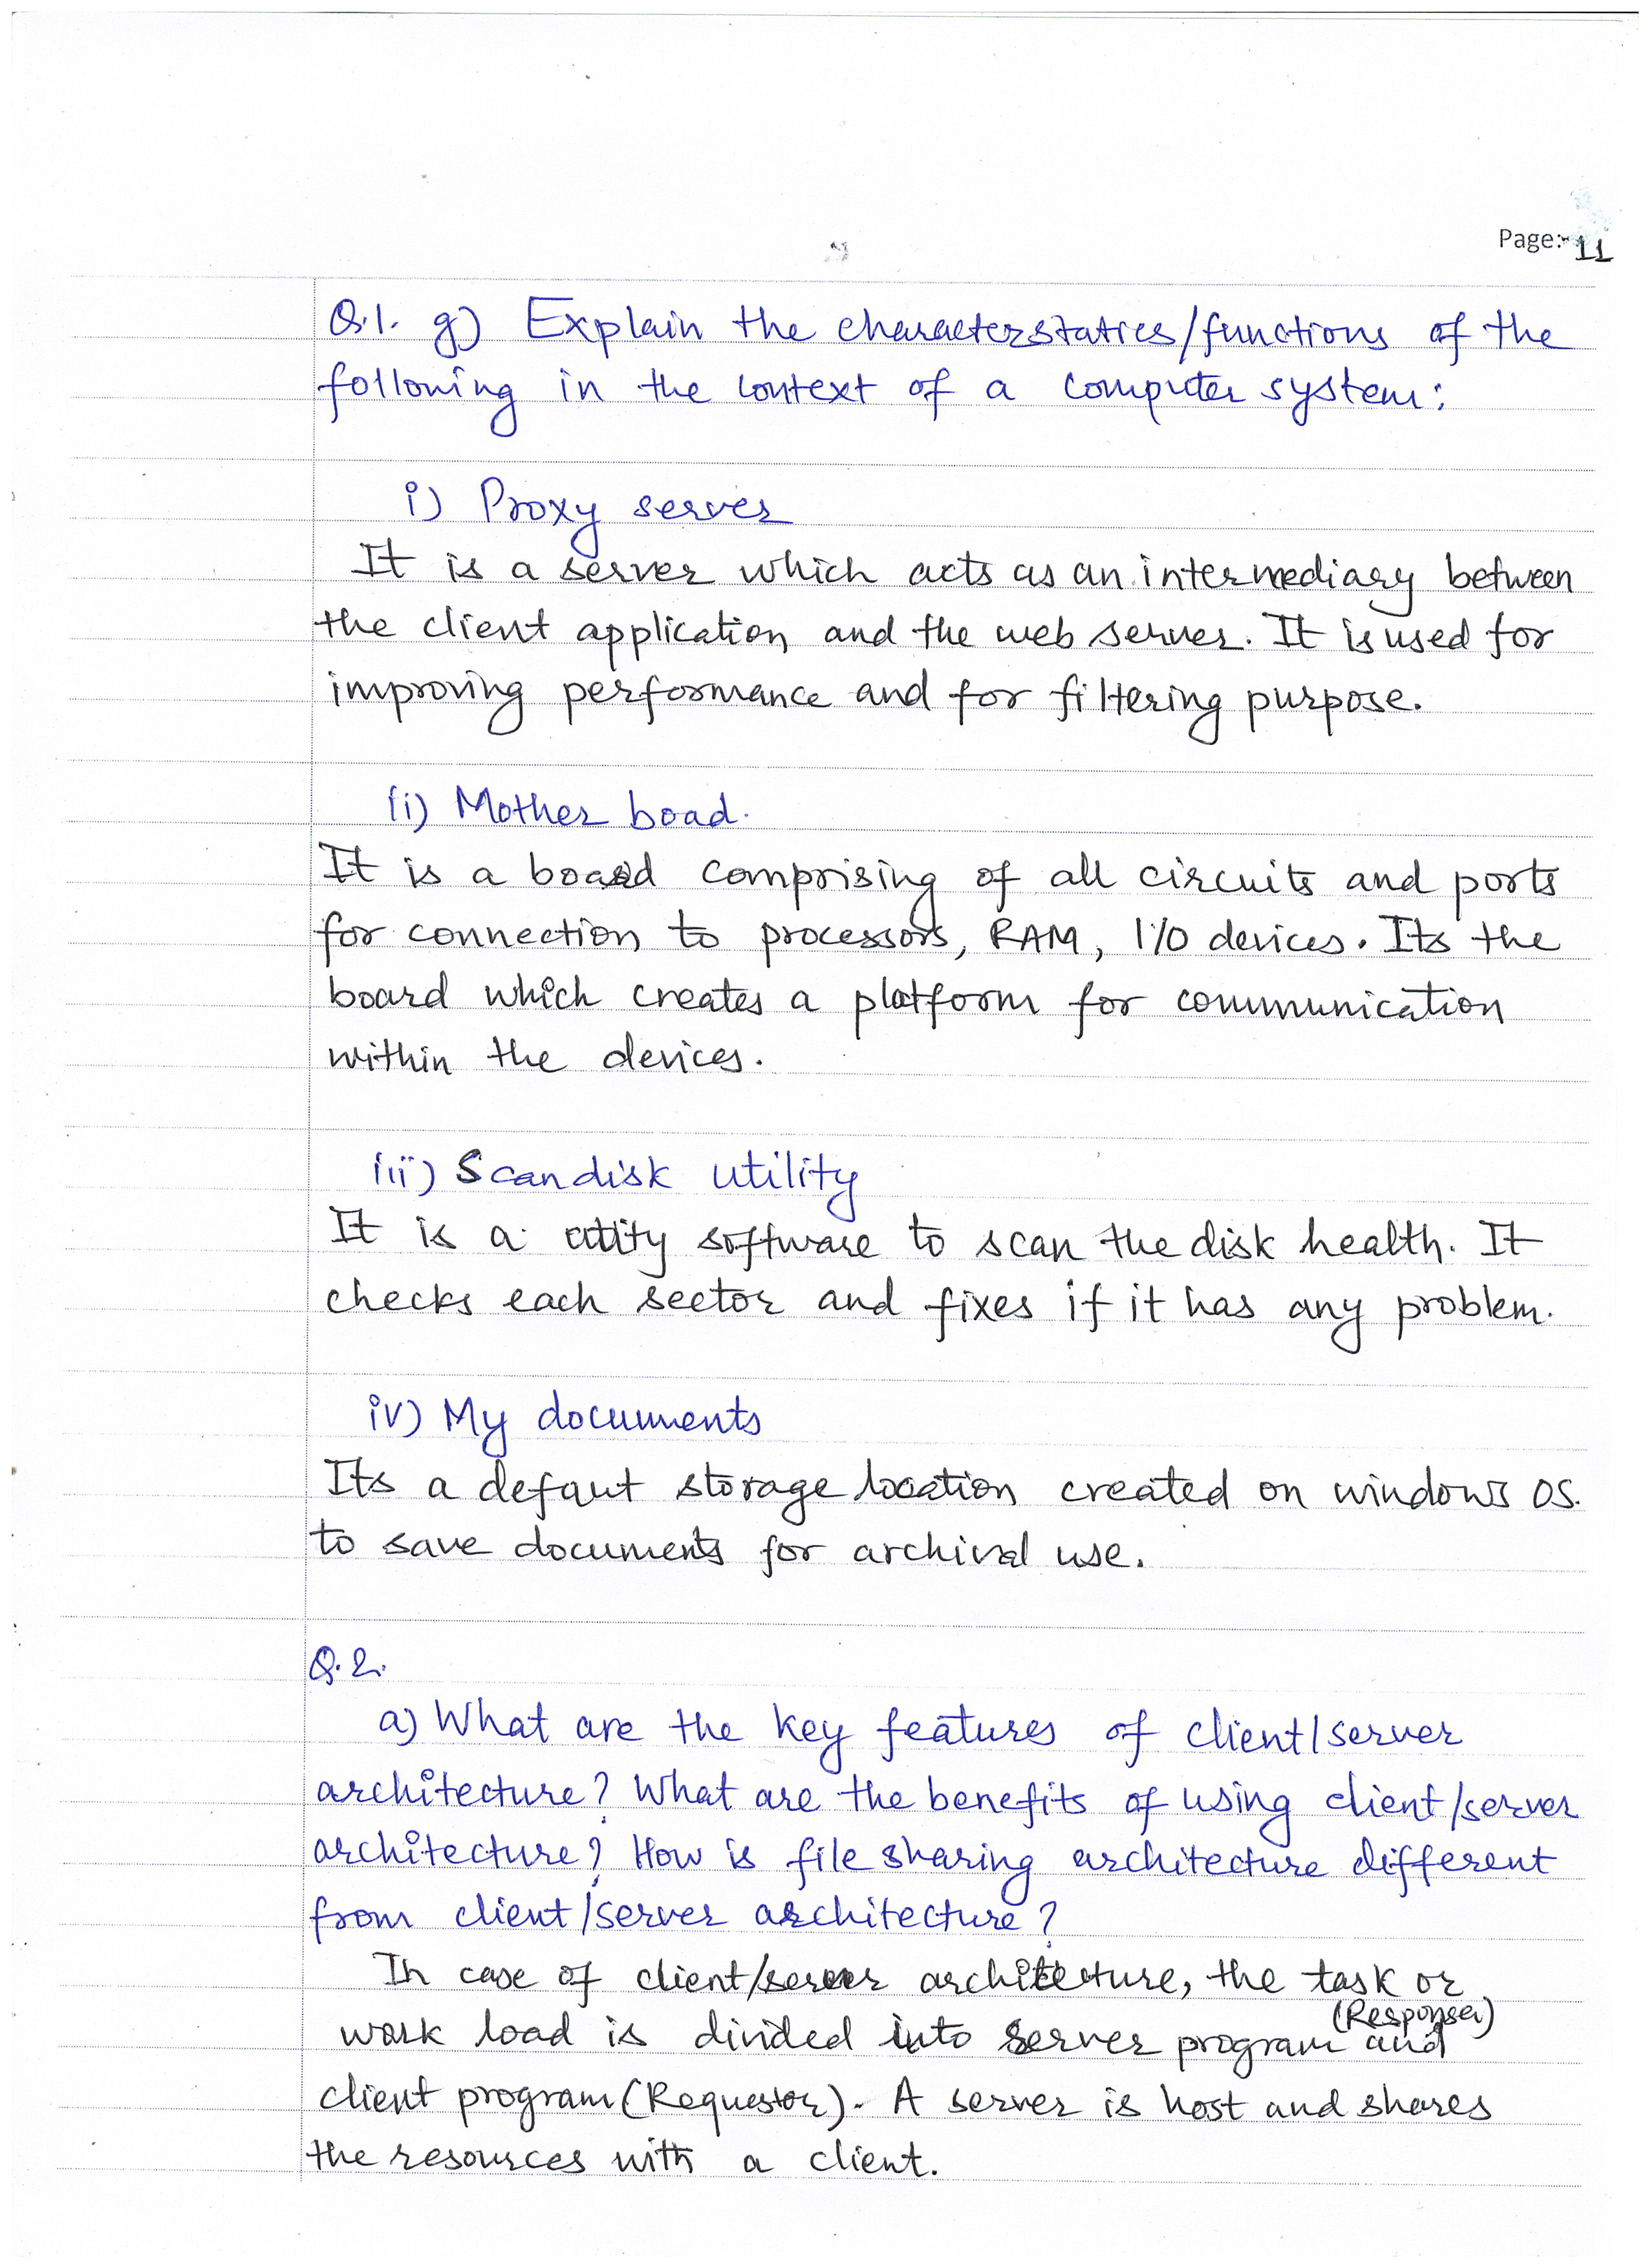 Page:- 11
Q.1. g) Explain the characterstatics/functions of the
following in the context of a computer system:
i) Proxy server
It is a server which acts as an intermediary between
the client application and the web server. It is used for
improving performance and for filtering purpose.
(i) Mother boad.
It is a board comprising of all circuits and ports
for connection to processors, RAM, I/O devices. Its the
board which creates a platform for communication
within the devices.
iii) Scandisk utility
It is a utlity software to scan the disk health. It
checks each sector and fixes if it has any problem.
iv) My documents
Its a defaut storage location created on windows OS.
to save documents for archival use.
Q.2.
a) What are the key features of client/server
architecture? What are the benefits of using client/server
architecture? How is file sharing architecture different
from client/server architecture?
In case of client/server architecture, the task or
(Responser)
work load is divided into server program and
client program (Requestor). A server is host and shares
the resources with a client.